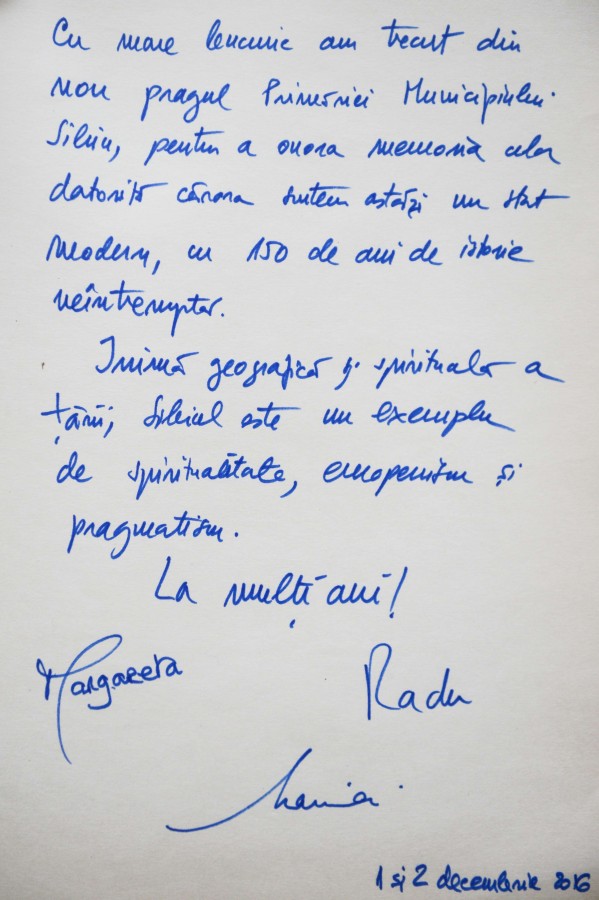 Cu mare bucurie am trecut din
nou pragul Primăriei Municipiului
Sibiu, pentru a onora memoria celor
datorită cărora suntem astăzi un stat
modern, cu 150 de ani de istorie
neîntreruptă.
Inimă geografică și spirituală a
țării, Sibiul este un exemplu
de spiritualitate, europenism și
pragmatism.
La mulți ani!
Margareta
Radu
Maria
1 si 2 decembrie 2016